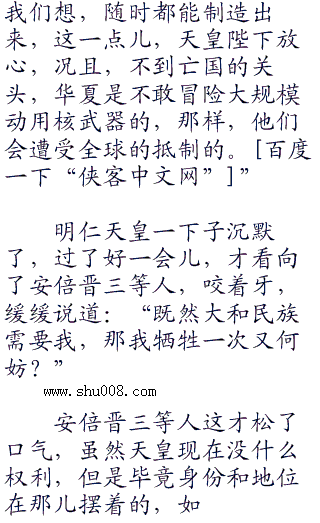 我们想，随时都能制造出
来，这一点儿，天皇陛下放
心，况且，不到亡国的关
头，华夏是不敢冒险大规模
动用核武器的，那样，他们
会遭受全球的抵制的。[百度
一下“侠客中文网”]”
明仁天皇一下子沉默
了，过了好一会儿，才看向
了安倍晋三等人，咬着牙，
缓缓说道：“既然大和民族
需要我，那我牺牲一次又何
妨？”
www.shu008.com
安倍晋三等人这才松了
口气，虽然天皇现在没什么
权利，但是毕竟身份和地位
在那儿摆着的，如